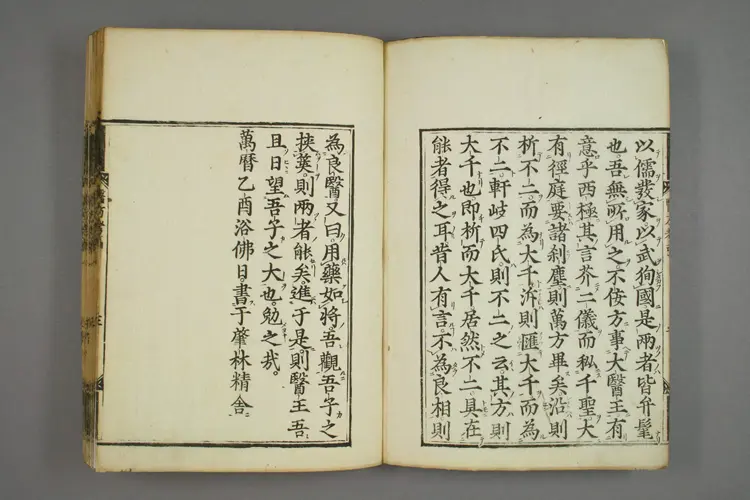 以儒發家以武徇國是兩者皆弁髦
也吾無所用之不佞方事大醫王有
意乎西極其言芥二儀而私千聖大
有徑庭要諸刹塵則萬方畢矣沿則
析不二而為大千泝則匯大千而為
不二軒岐四氏則不二之云其方則
大千也即析而大千居然不二具在
能者得之耳昔人有言不為良相則
為良醫又曰用藥如將吾觀吾子之
挾筴則兩者能矣進于是則醫王吾
且日望吾子之大也勉之哉
萬曆乙酉浴佛日書于肇林精舍